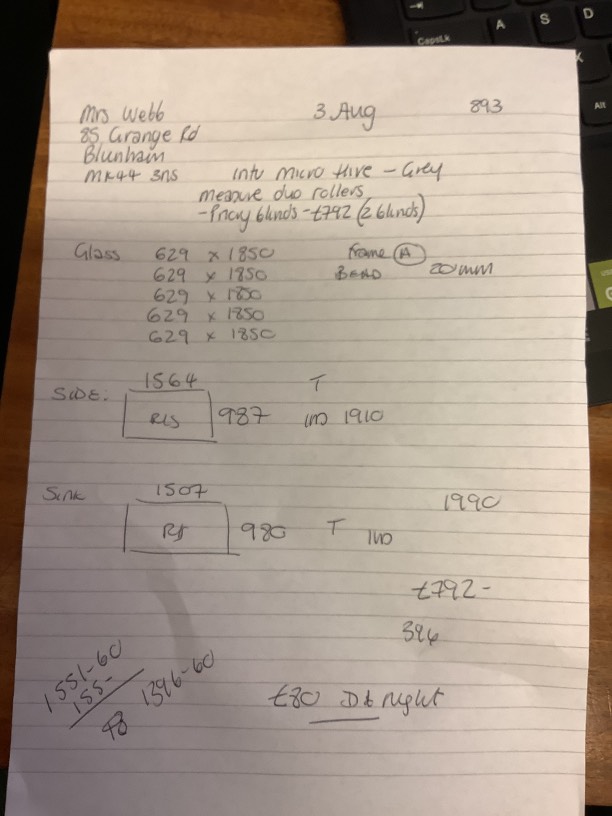 CapsLk
A
S
D
Alt
Mrs Webb 3 Aug 893
85 Grange Rd
Blunham
MK44 3ns Intu Micro Hive - Grey
measure duo rollers
- blinds - £792 (2 blinds)
Glass 629 x 1850 Frame A
629 x 1850 BEAD 20mm
629 x 1850
629 x 1850
629 x 1850
1564 T
SIDE: 987 1910
Sink 1507 1990
980 T
£792-
396
1551-60
155-
1396-60
£80 right